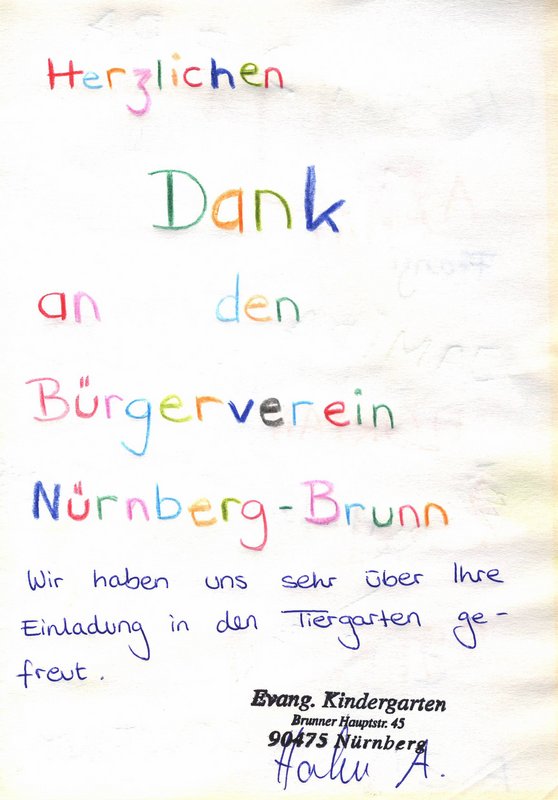 Herzlichen
Dank
an den
Bürgerverein
Nürnberg-Brunn
Wir haben uns sehr über Ihre
Einladung in den Tiergarten ge-
freut.
Evang. Kindergarten
Brunner Hauptstr. 45
90475 Nürnberg
A.